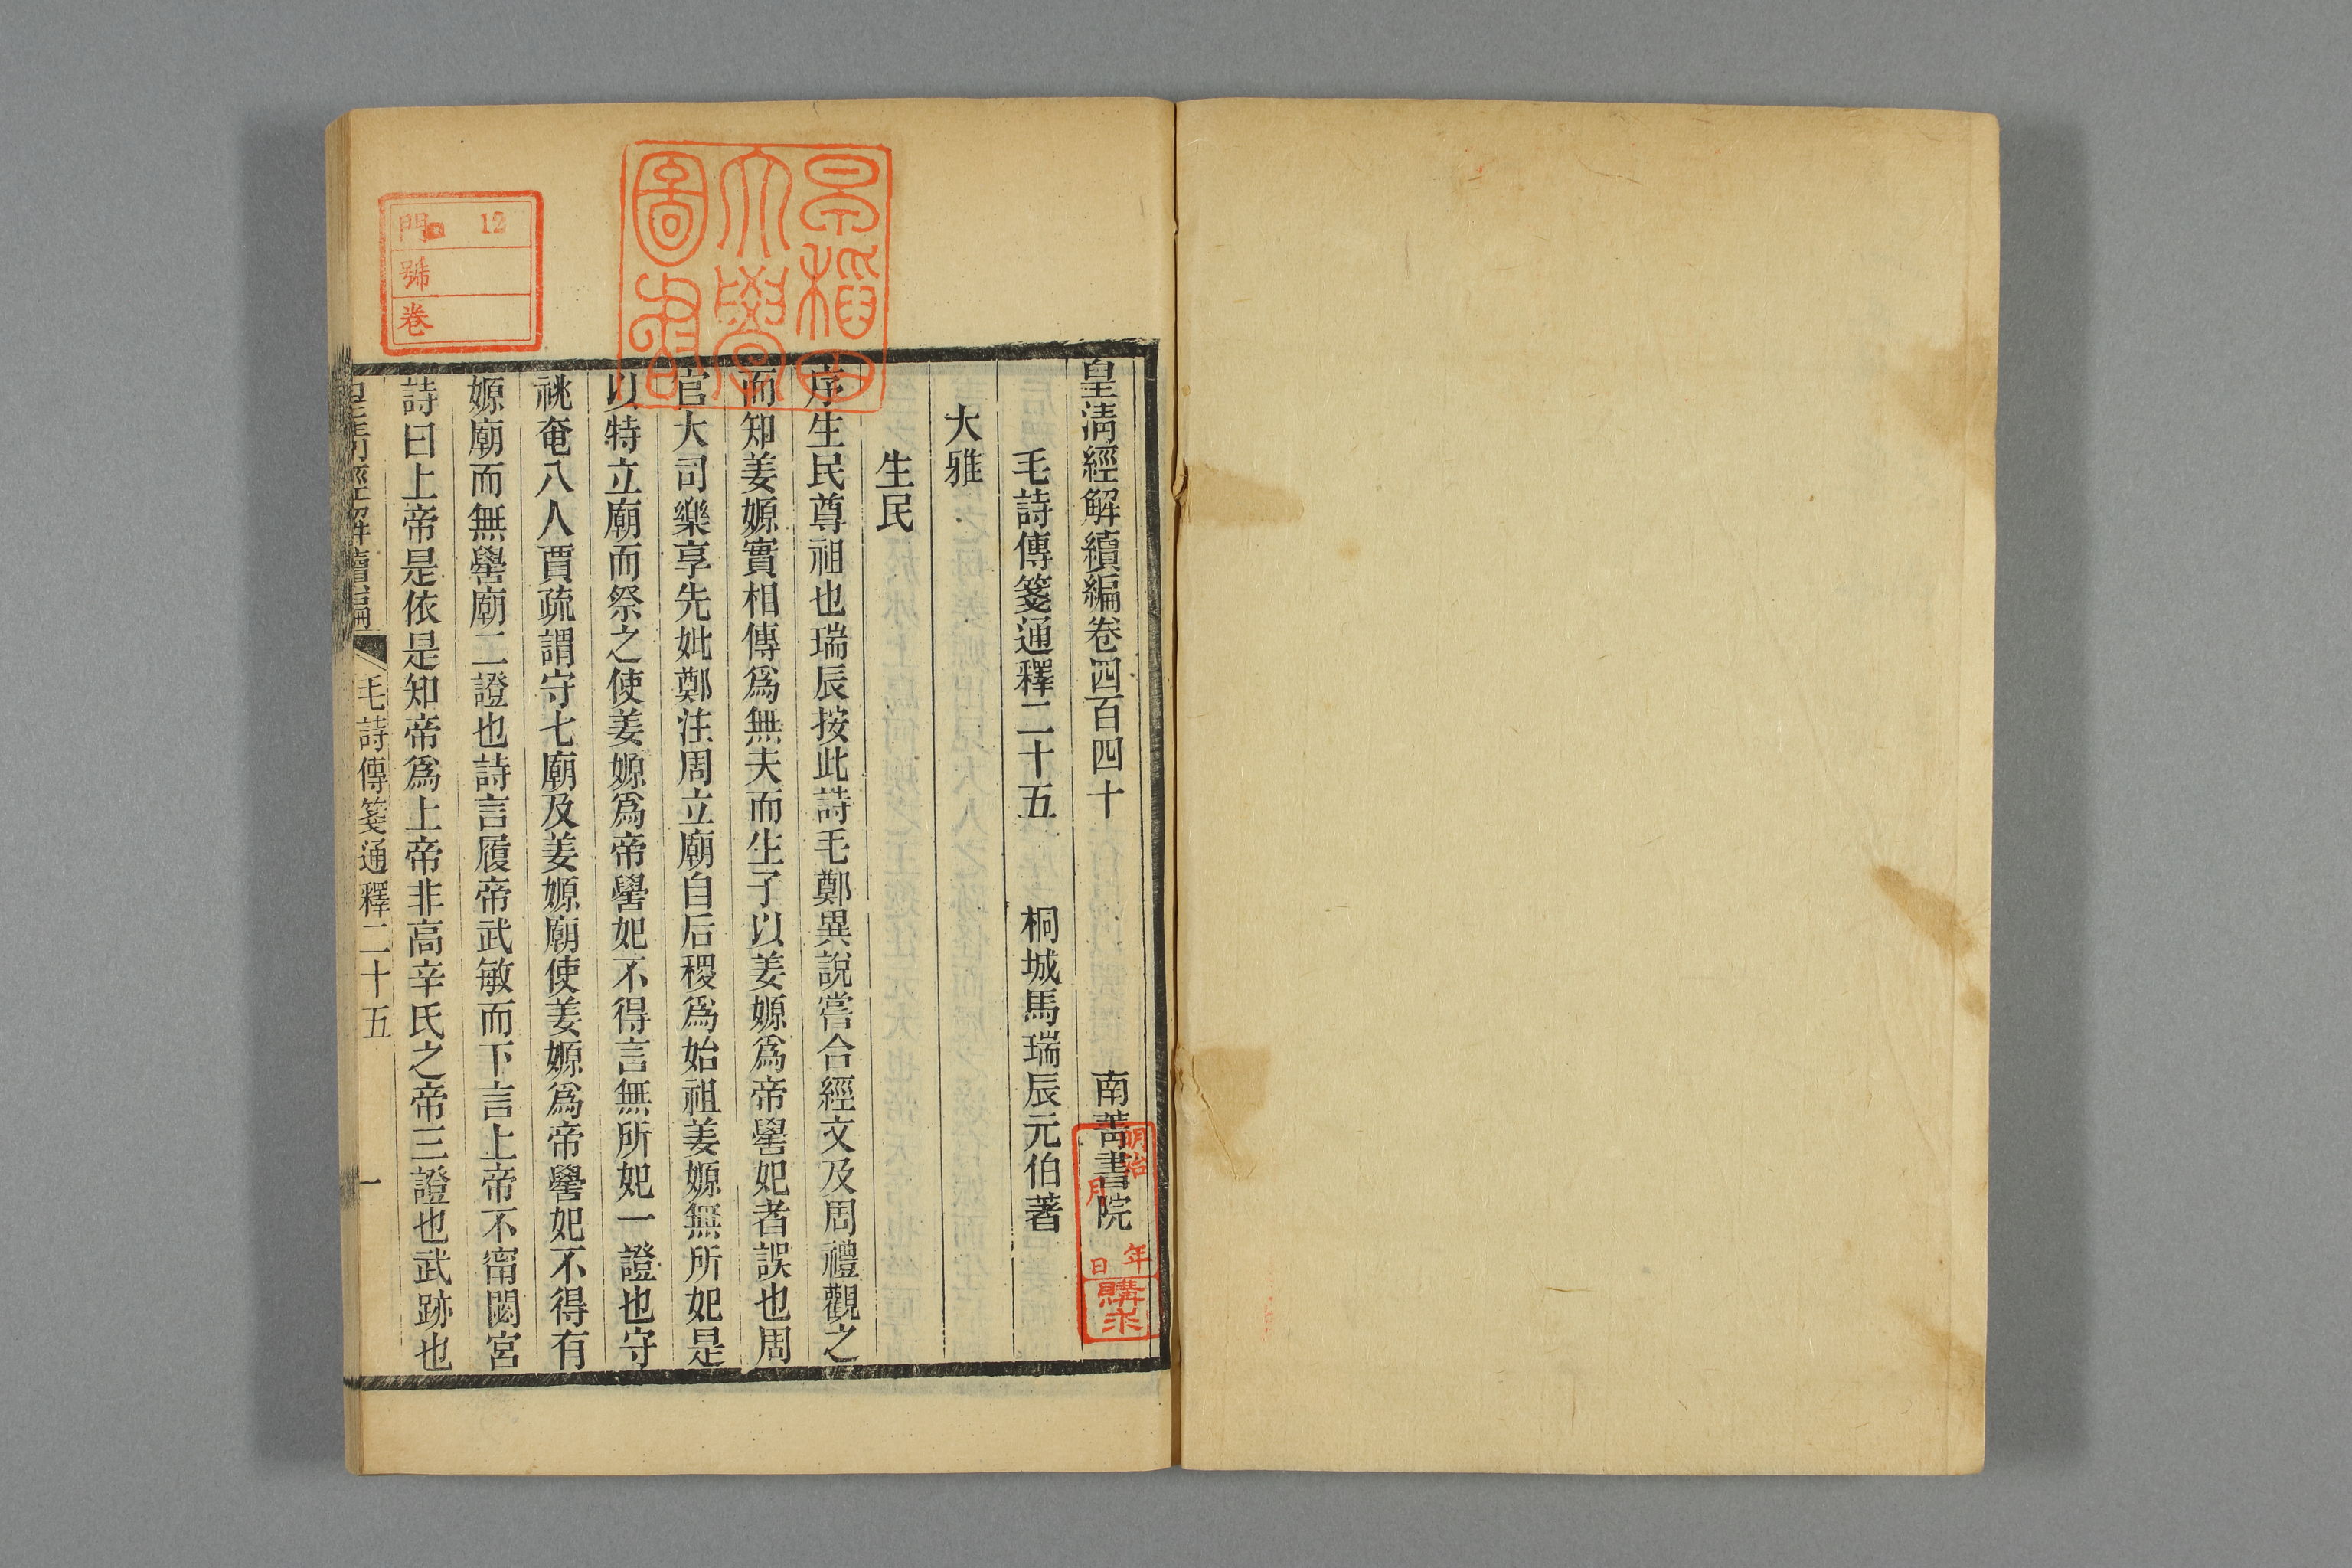 皇清經解續編卷四百四十
南菁書院
毛詩傳箋通釋二十五
桐城馬瑞辰元伯著
大雅
生民
序生民尊祖也瑞辰按此詩毛鄭異說嘗合經文及周禮觀之
而知姜嫄實相傳爲無夫而生子以姜嫄爲帝嚳妃者誤也周
官大司樂享先妣鄭注周立廟自后稷爲始祖姜嫄無所妃是
以特立廟而祭之使姜嫄爲帝嚳妃不得言無所妃一證也守
祧奄八人賈疏謂守七廟及姜嫄廟使姜嫄爲帝嚳妃不得有
嫄廟而無嚳廟二證也詩言履帝武敏而下言上帝不甯閟宮
詩曰上帝是依是知帝爲上帝非高辛氏之帝三證也武跡也
皇清經解續編
毛詩傳箋通釋二十五
一
早稻田
大學
圖書
門 12
號
卷
明治
年
月
日
購求